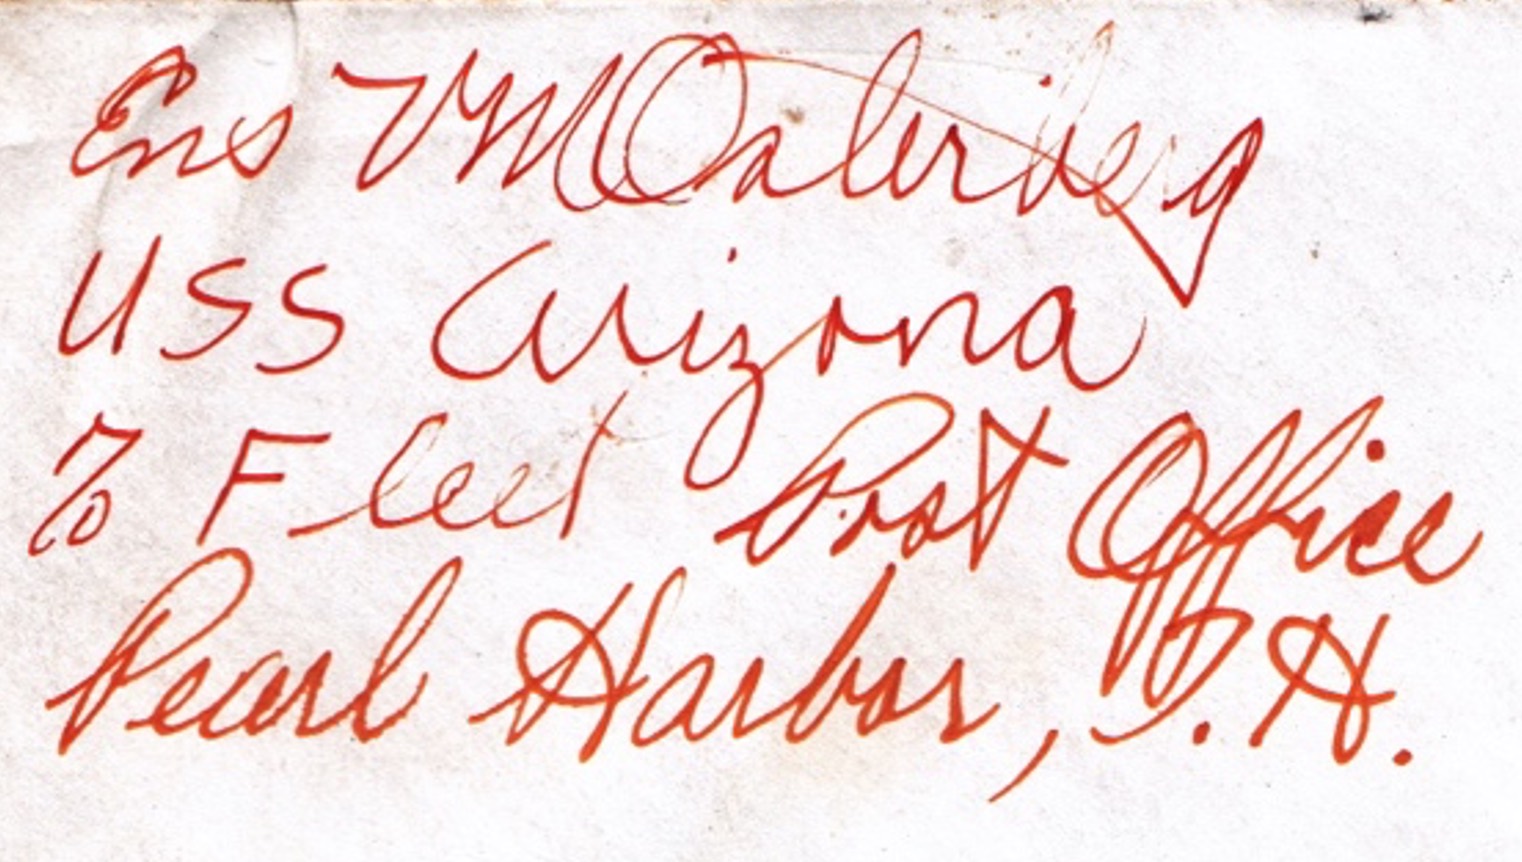 Ens
USS Arizona
% Fleet Post Office
Pearl Harbor, T.H.